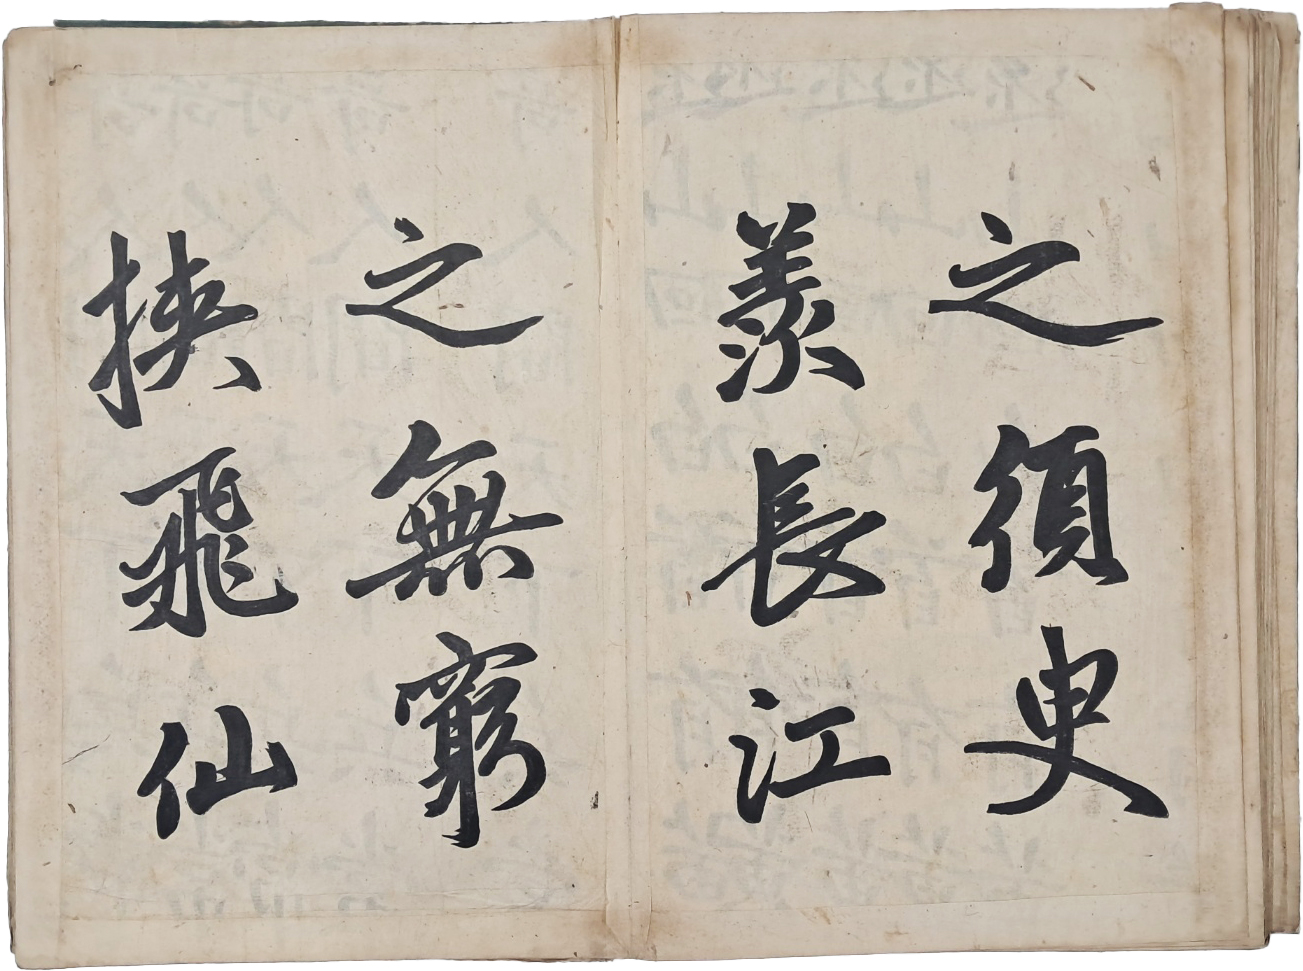 之須臾
羨長江
之無窮
挾飛仙